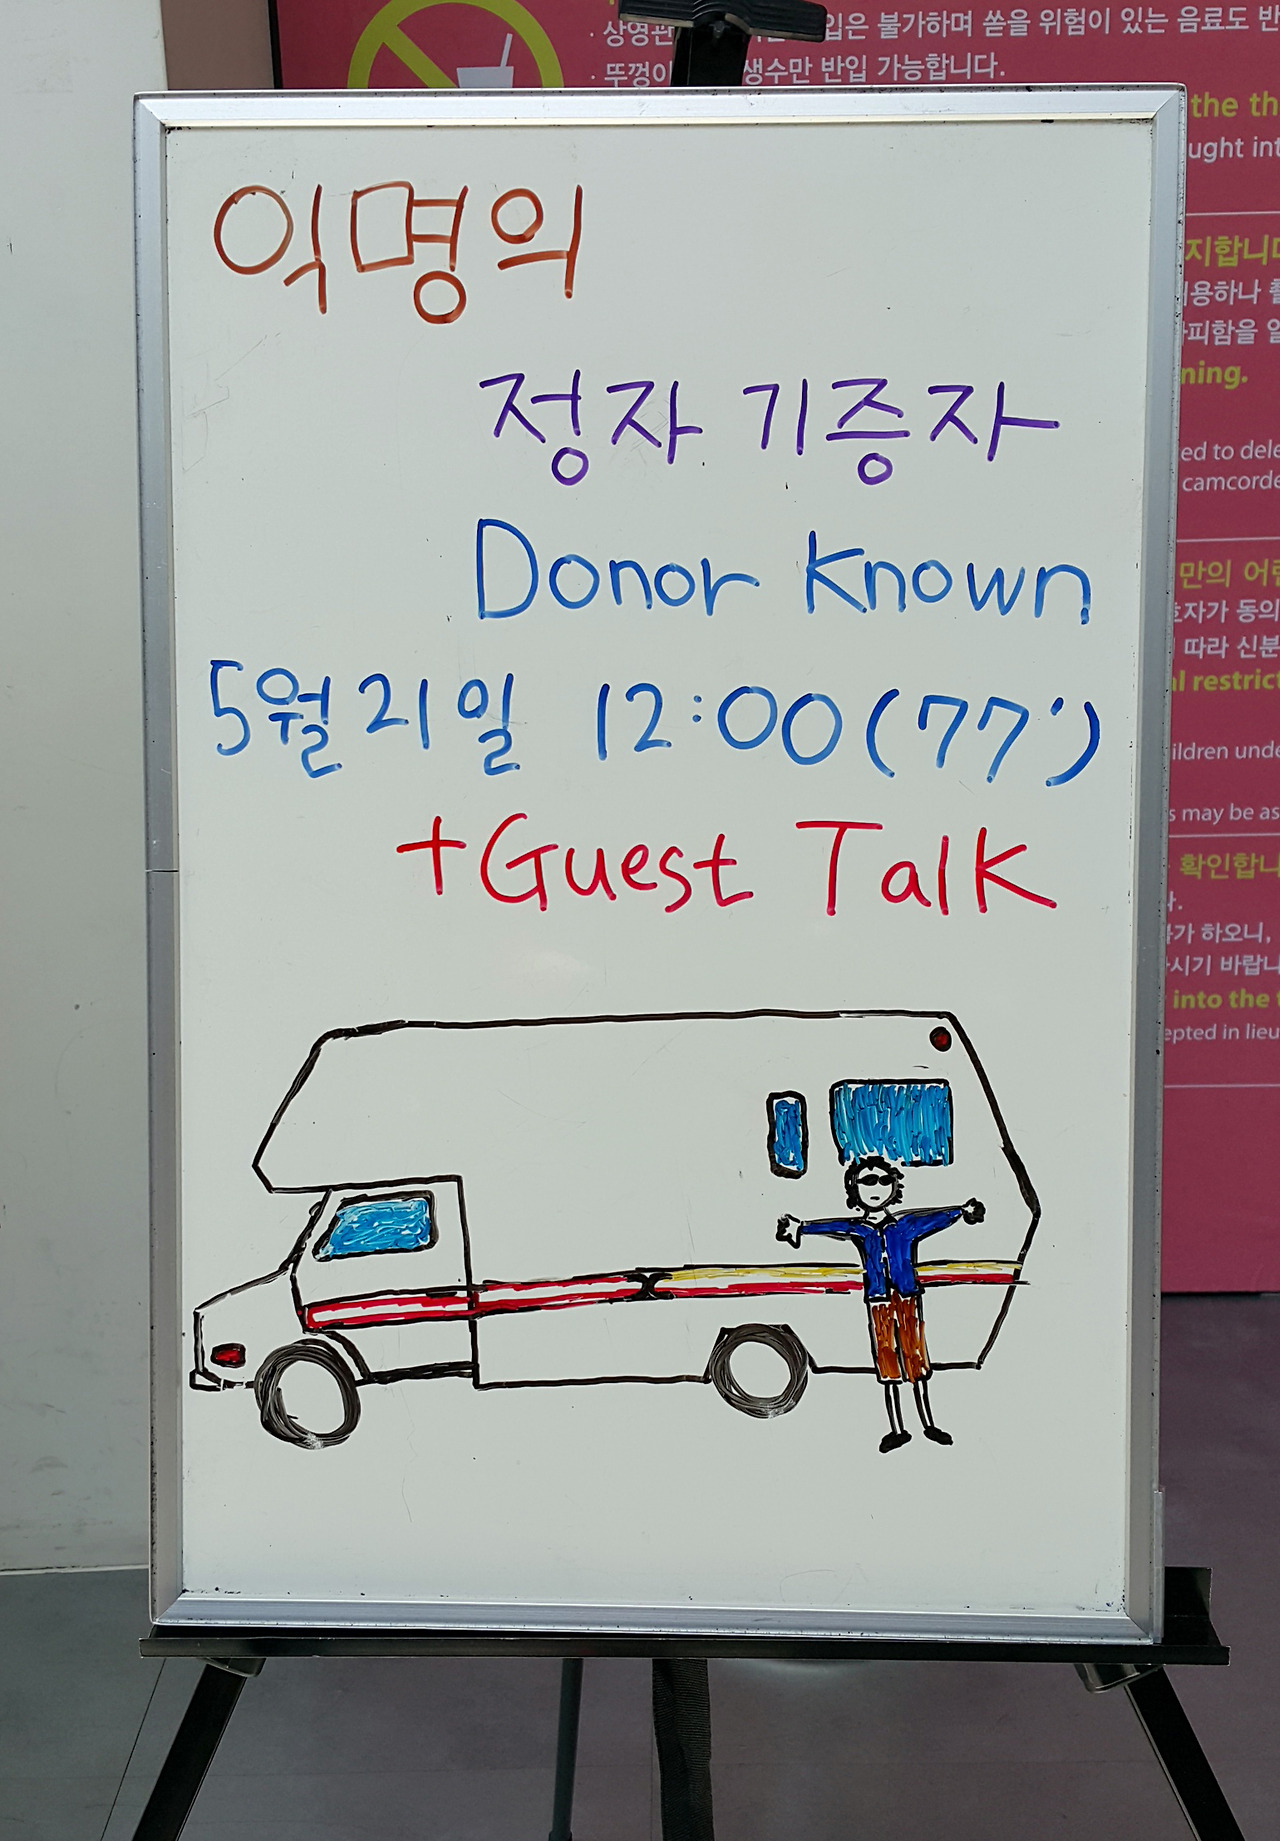 상영관
입은 불가하며 쏟을 위험이 있는 음료도 반
뚜껑이
생수만 반입 가능합니다.
the th
ught int
익명의
정자 기증자
Donor Known
5월 21일 12:00 (77')
+Guest Talk
지합니다
용하나
피함을
ning.
ed to dele
camcorde
만의 어린
자가 동의
따라 신분
al restrict
ildren unde
s may be as
확인합니
가 하오니,
시기 바랍니
into the
epted in lieu